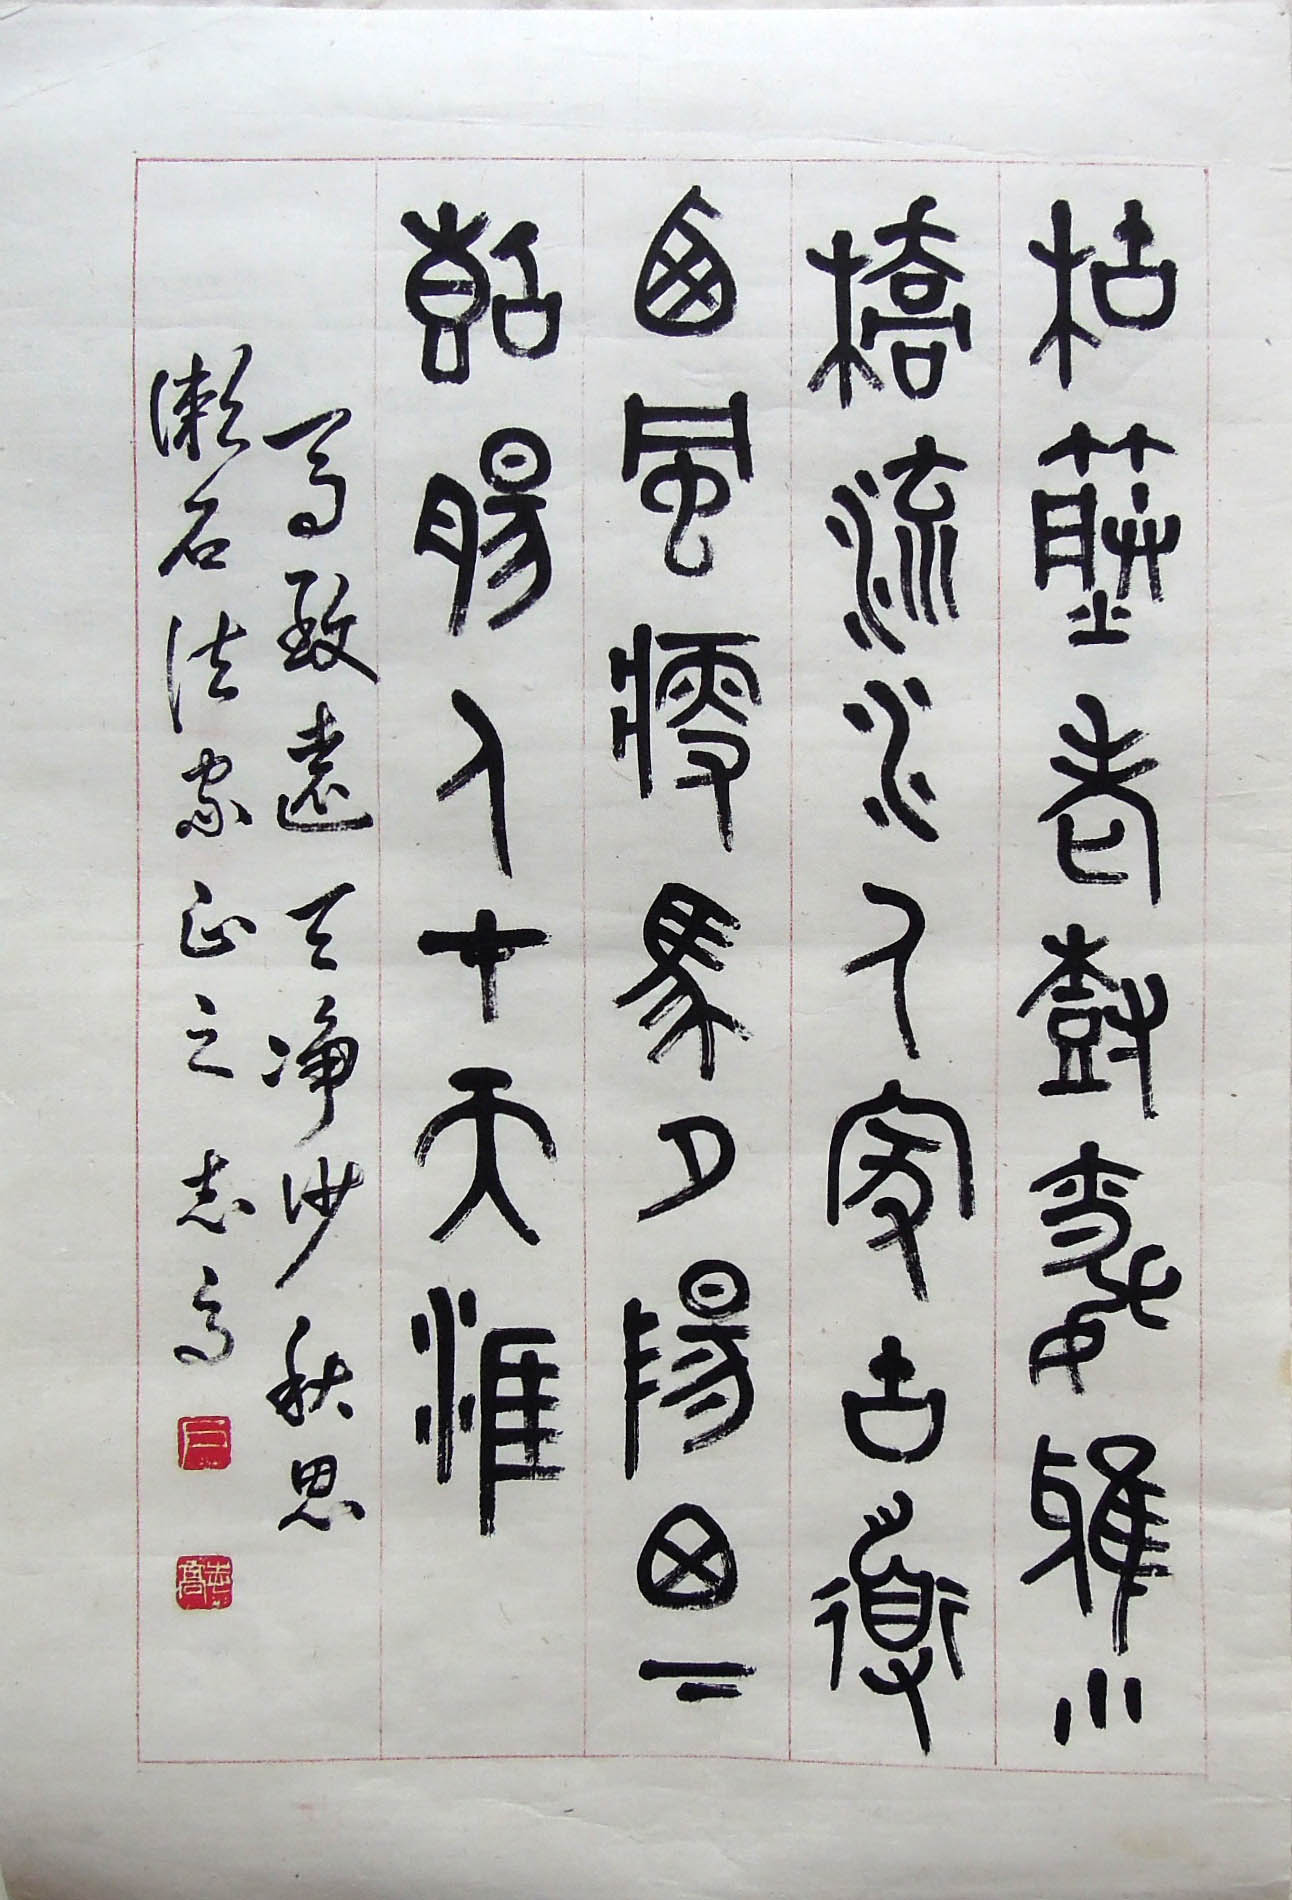 枯藤老樹昏鴉小
橋流水人家古道
西風瘦馬夕陽西下
斷腸人在天涯
馬致遠天净沙秋思
漱石法家正之志高
志高